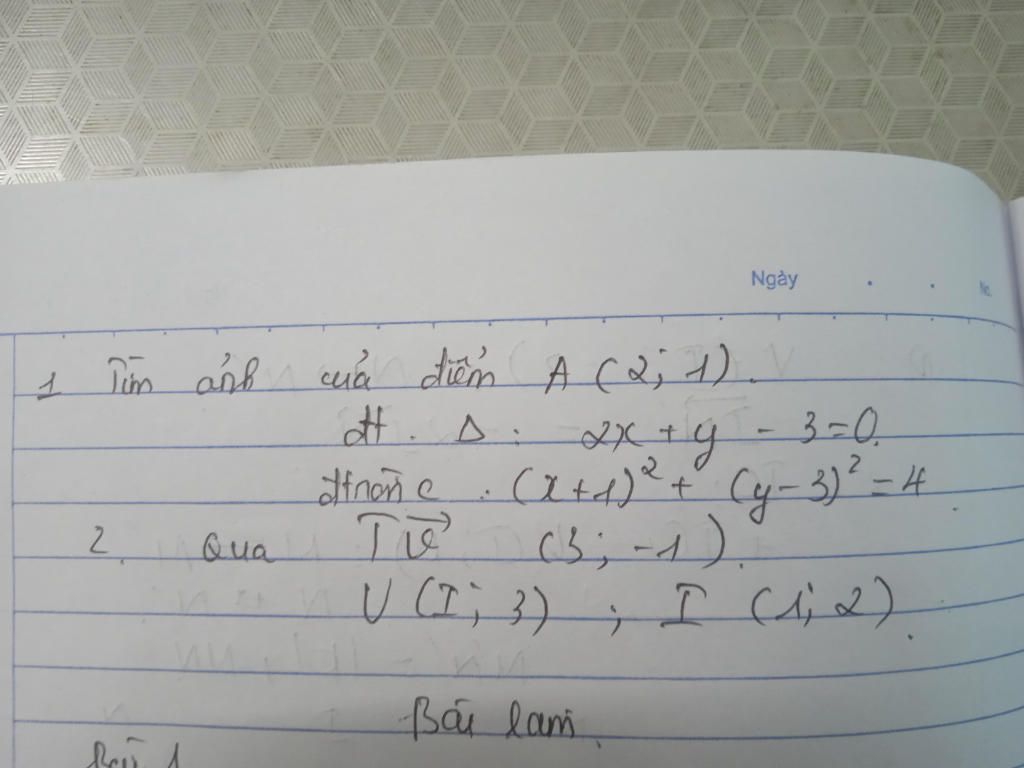 Ngày . . No.
1 Tìm ảnh của điểm A (2; 1).
đt. Δ: 2x + y - 3 = 0.
đtròn C : (x+1)² + (y-3)² = 4.
2. Qua Tv⃗ (3; -1).
V (I; 3) ; I (1; 2).
Bài làm.
Bài 1